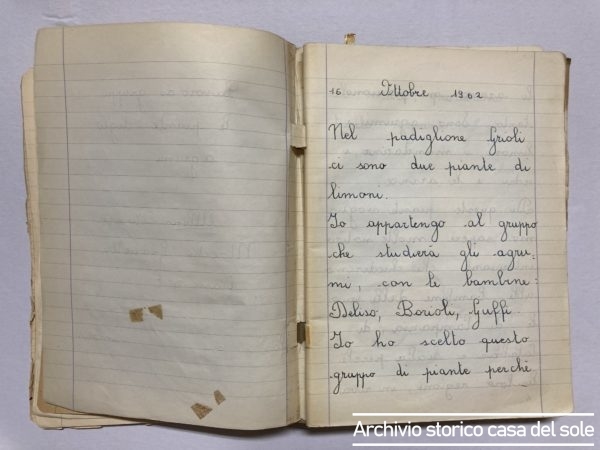 16 Ottobre 1962
Nel padiglione Grioli
ci sono due piante di
limoni.
Io appartengo al gruppo
che studierà gli agru-
mi, con le bambine:
Deliso, Borioli, Guffi.
Io ho scelto questo
gruppo di piante perchè
Archivio storico casa del sole